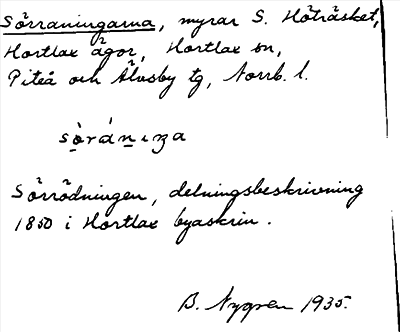 Sörraningarna, myrar S. Höträsket,
Hortlax ägor, Hortlax sn,
Piteå och Älvsby tg, Norrb. l.
sö̀ránıŋa
Sörrödningen, delningsbeskrivning
1850 i Hortlax byaskrin.
B. Nygren 1935.